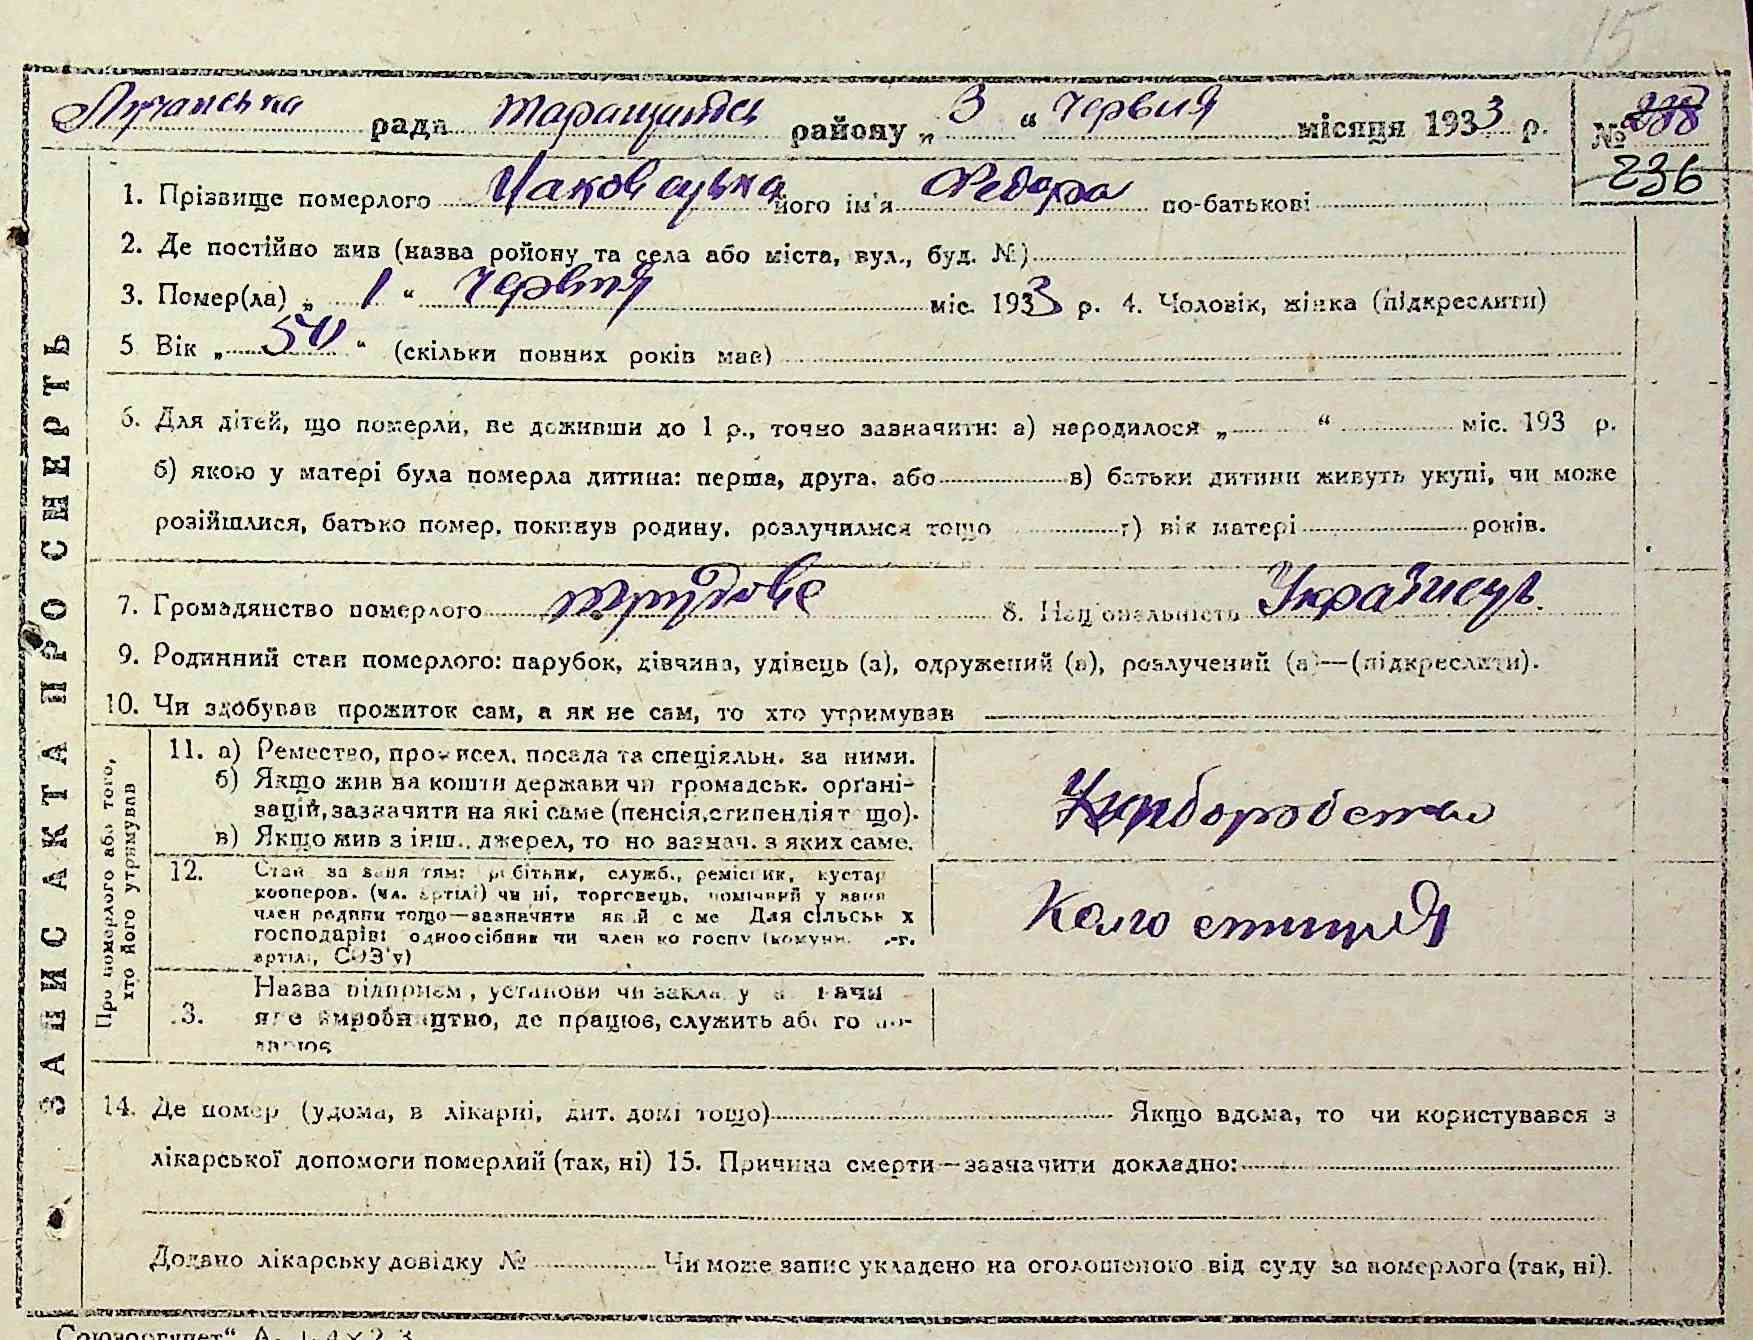 15
Лучанська рада Таращансь району „ 3 “ червня місяця 1933 р. № 238
236
1. Прізвище померлого його ім'я Федора по-батькові
2. Де постійно жив (назва ройону та села або міста, вул., буд. №)
3. Помер(ла) „ 1 “ червня міс. 1933 р. 4. Чоловік, жінка (підкреслити)
5 Вік „ 50 “ (скільки повних років мав)
6. Для дітей, що померли, не доживши до 1 р., точно зазначити: а) народилося „ “ міс. 193 р.
б) якою у матері була померла дитина: перша, друга, або в) батьки дитини живуть укупі, чи може
розійшлися, батько помер, покинув родину, розлучилися тощо г) вік матері років.
7. Громадянство померлого трудове 8. Національність Українець
9. Родинний стан померлого: парубок, дівчина, удівець (а), одружений (а), розлучений (а)—(підкреслити).
10. Чи здобував прожиток сам, а як не сам, то хто утримував
ЗАПИС АКТА ПРО СМЕРТЬ
Про померлого або того, хто його утримував
11. а) Ремество, промисел, посада та спеціяльн. за ними.
б) Якщо жив на кошти держави чи громадськ. органі-
зацій, зазначити на які саме (пенсія, стипендія т що).
в) Якщо жив з інш. джерел, то но зазнач. з яких саме.
Хлібороб
12. Стан за заня тям: робітник, служб., реміс ик, кустар
кооперов. (чл. артілі) чи ні, торговець, помічний у заня
член родини тощо—зазначити який с ме Для сільськ х
господарів: одноосібник чи член ко госпу (комуни, -г.
артілі, СОЗ'у)
13. Назва підприєм, установи чи закла у
яке виробництво, де працює, служить або го
14. Де помер (удома, в лікарні, дит. домі тощо) Якщо вдома, то чи користувався з
лікарської допомоги померлий (так, ні) 15. Причина смерти—зазначити докладно:
Додано лікарську довідку № Чи може запис укладено на оголошеного від суду за померлого (так, ні).